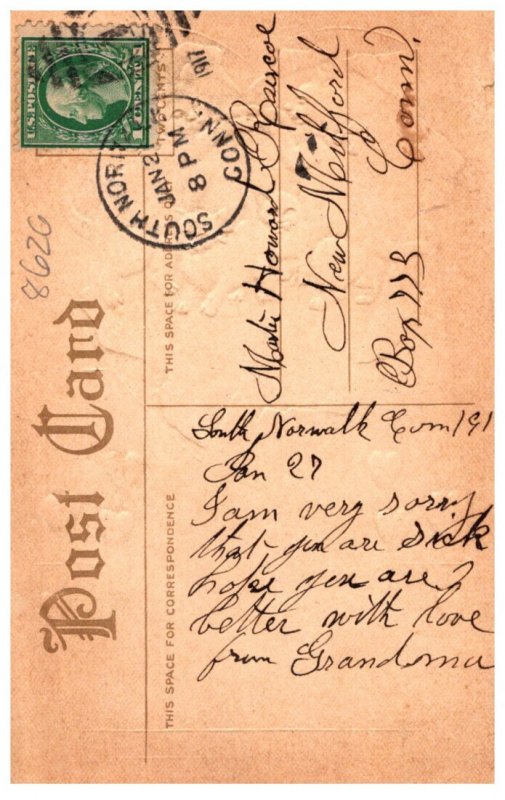 Post Card
THIS SPACE FOR CORRESPONDENCE
THIS SPACE FOR ADDRESS ON
TWO CENTS
U.S. POSTAGE
1 CENT 1
SOUTH NOR
CONN
JAN 2
8 PM
1917
8620
South Norwalk Conn 191
Jan 27
I am very sorry
that you are sick
hope you are
better with love
from Grandma
Howard
New Milford
Conn.
Box